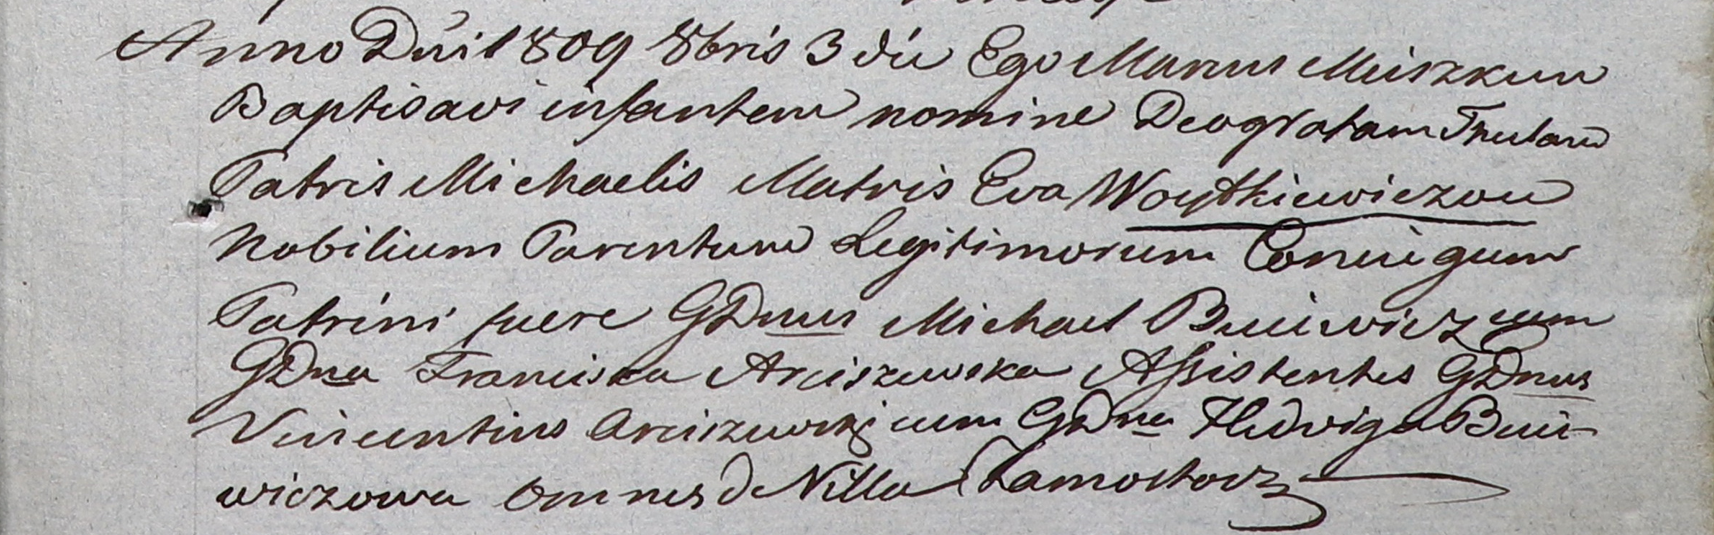 Anno Dni 1809 8bris 3 die Ego Marcus Miszkun
Baptisavi infantem nomine Deogratam Theclam
Patris Michaelis Matris Eva Woytkiewiczow
Nobilium Parentum Legitimorum Coniugum
Patrini fuere GDnus Michael Buiwicz cum
GDna Francisca Arciszewska Assistentes GDnus
Vincentius Arciszewski cum GDna Hedviga Bui-
wiczowa omnes d Villa